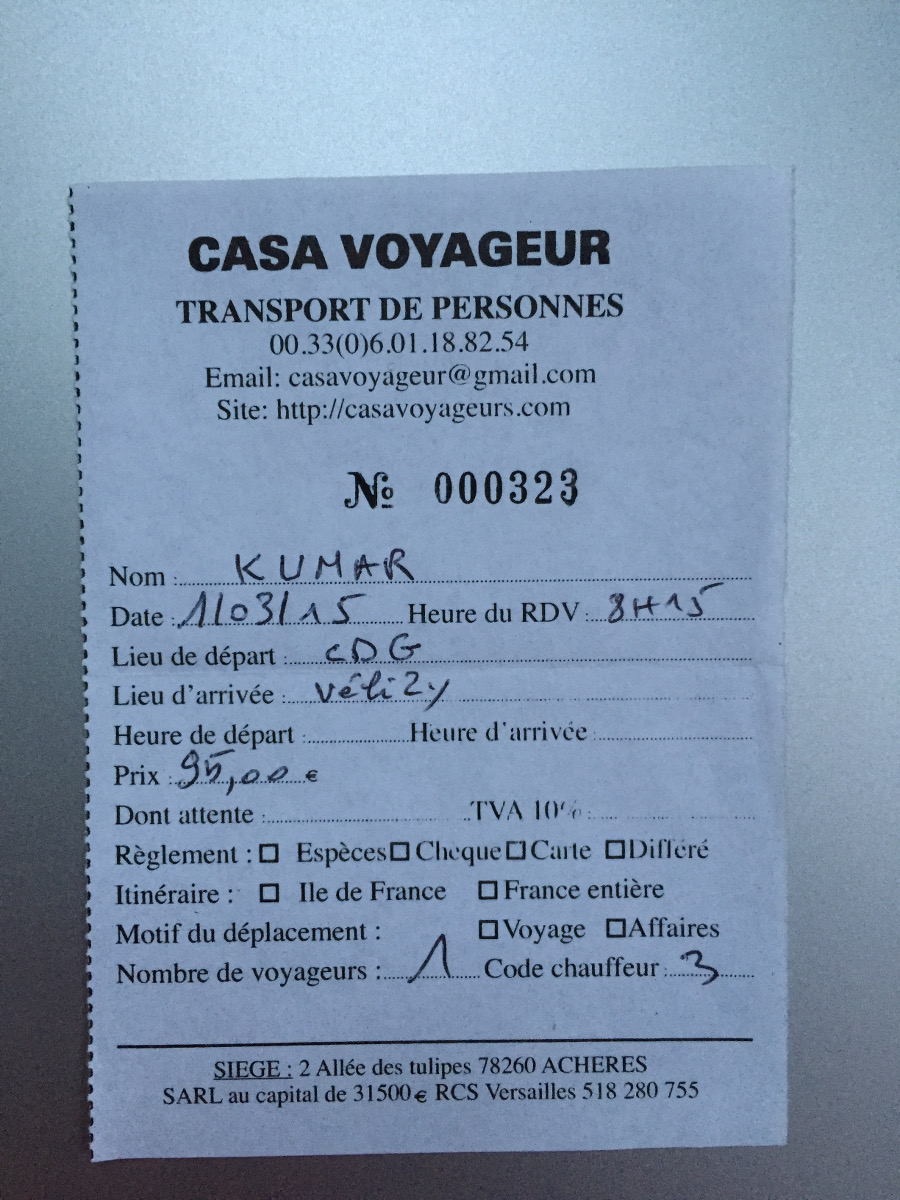 CASA VOYAGEUR
TRANSPORT DE PERSONNES
00.33(0)6.01.18.82.54
Email: casavoyageur@gmail.com
Site: http://casavoyageurs.com
№ 000323
Nom : KUMAR
Date : 1/03/15 Heure du RDV : 8H15
Lieu de départ : CDG
Lieu d'arrivée : Vélizy
Heure de départ : Heure d'arrivée :
Prix : 95,00 €
Dont attente : TVA 10% :
Règlement : □ Espèces □ Cheque □ Carte □ Différé
Itinéraire : □ Ile de France □ France entière
Motif du déplacement : □ Voyage □ Affaires
Nombre de voyageurs : 1 Code chauffeur : 3
SIEGE : 2 Allée des tulipes 78260 ACHERES
SARL au capital de 31500 € RCS Versailles 518 280 755